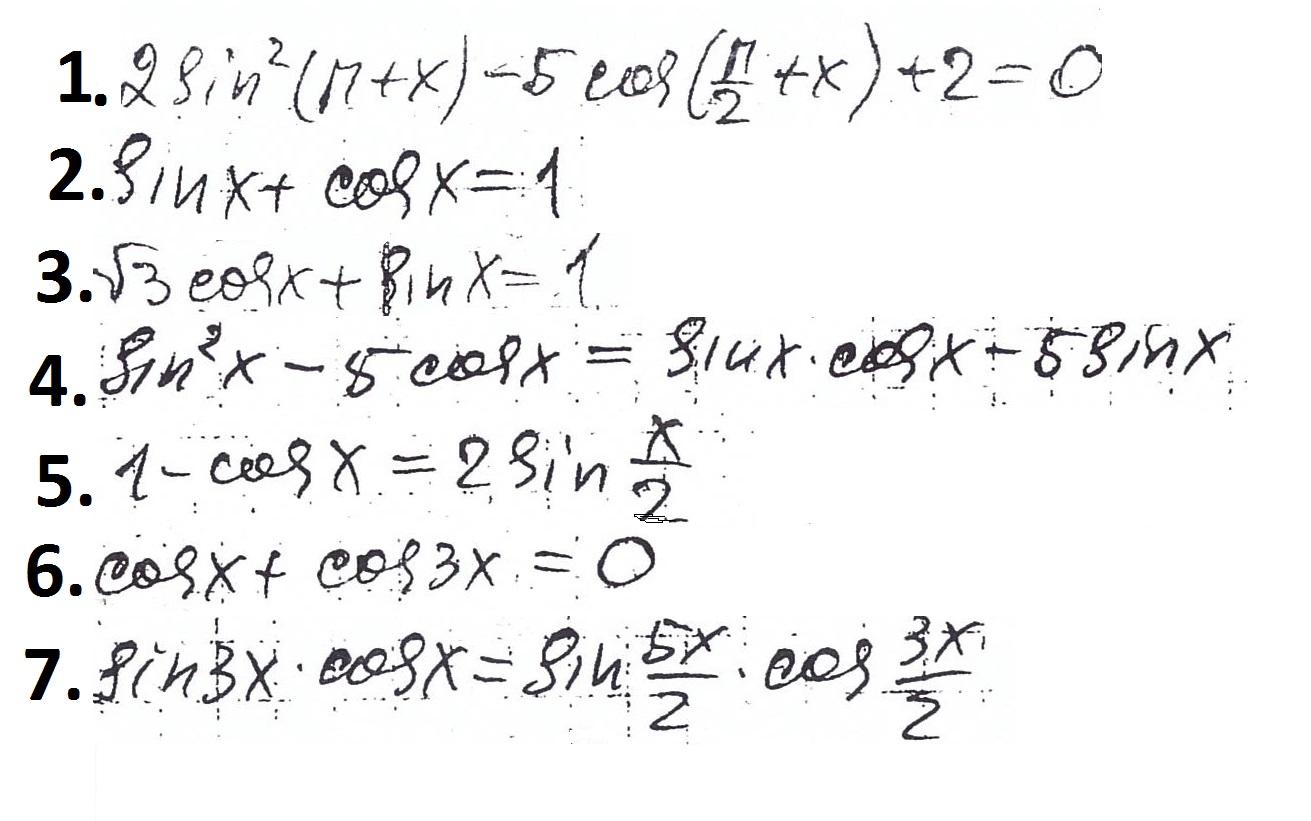 1. 2 sin²(π+x) - 5 cos(π/2 + x) + 2 = 0
2. sin x + cos x = 1
3. √3 cos x + sin x = 1
4. sin²x - 5 cos x = sin x · cos x - 5 sin x
5. 1 - cos x = 2 sin x/2
6. cos x + cos 3x = 0
7. sin 3x · cos x = sin 5x/2 · cos 3x/2